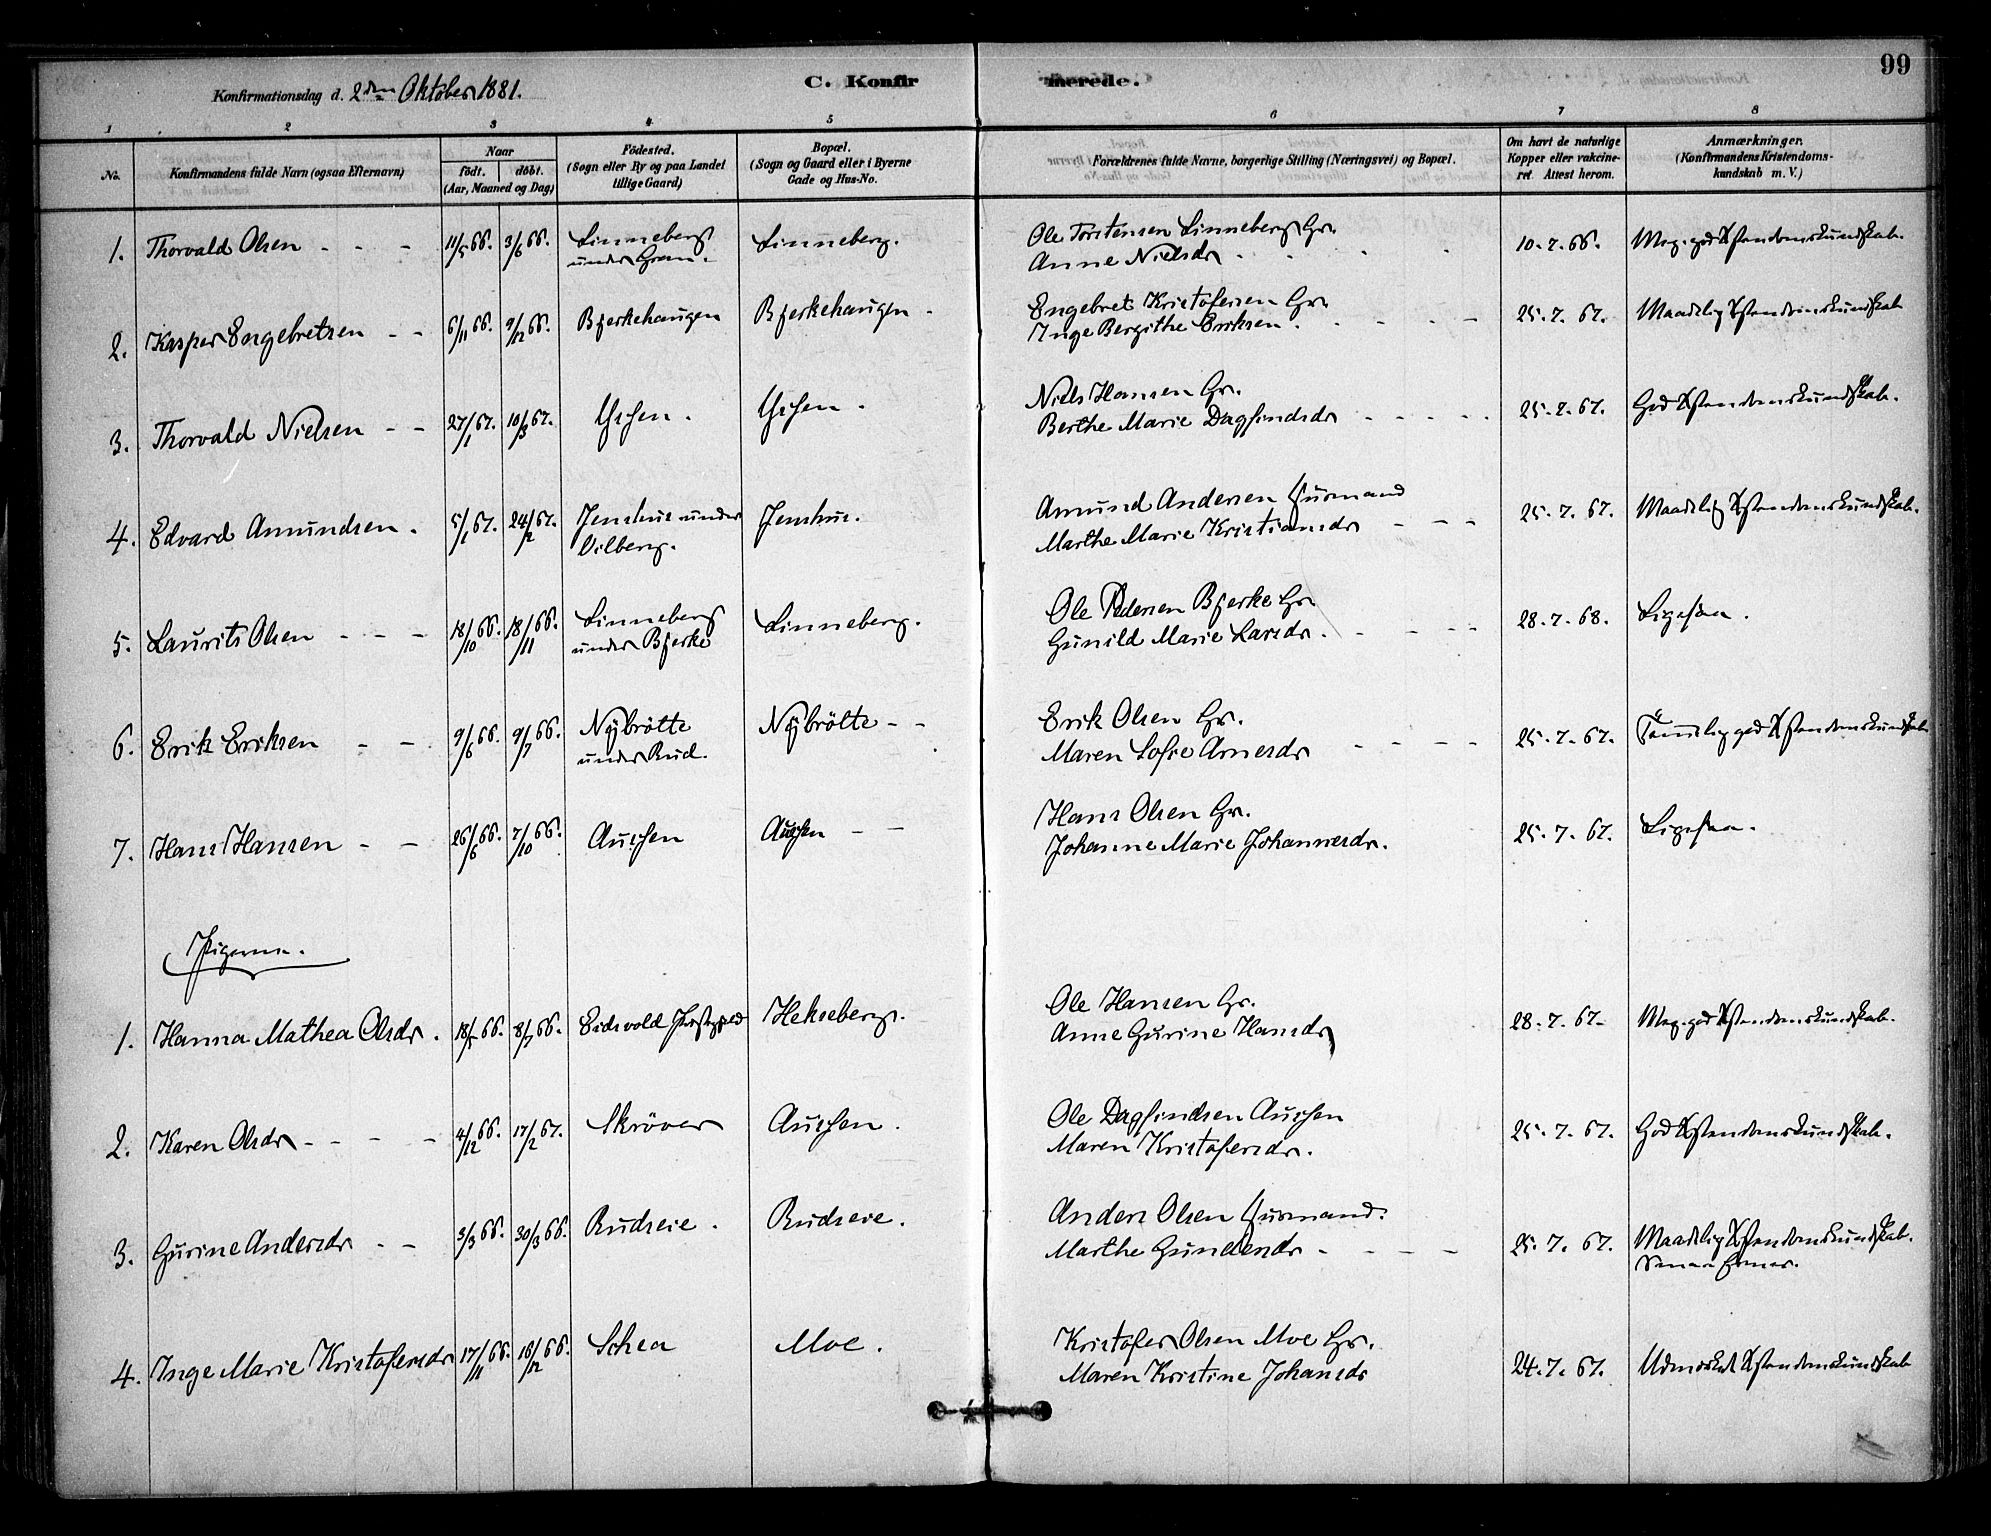 99
Konfirmationsdag d. 2den Oktober 1881.
C. Konfirmerede.
1 2 3 4 5 6 7 8
No.
Konfirmandens fulde Navn (ogsaa Efternavn)
Naar
födt. döbt.
(Aar, Maaned og Dag)
Födested.
(Sogn eller By og paa Landet
tillige Gaard)
Bopæl.
(Sogn og Gaard eller i Byerne
Gade og Hus-No.
Forældrenes fulde Navne, borgerlige Stilling (Næringsvei) og Bopæl.
Om havt de naturlige
Kopper eller vakcine-
ret. Attest herom.
Anmærkninger.
(Konfirmandens Kristendoms-
kundskab m. V.)
1. Thorvald Olsen - - - 11/5 66. 3/6 66. Linneberg Linneberg. Ole Torstensen Linneberg Gr. 10-7-66. Meg. god Xstendomskundskab.
under Gran. Anne Nielsdr
2. Kasper Engebretsen - - 6/11 66. 9/12 66. Bjerkehaugen Bjerkehaugen - Engebret Kristofersen Gr. 25-7-67. Maadelig Xstendomskundskab
Inge Bergithe Eriksen.
3. Thorvald Nielsen - - 27/1 67. 10/3 67. Niels Hansen Gr. 25-7-67. God Xstendomskundskab.
Berthe Marie Dagfindsdr
4. Edvard Amundsen. 5/1 67. 24/2 67. Jenshus under Jenshus. Amund Andersen Husmand 25-7-67. Maadelig Xstendomskundskab.
Vilberg. Marthe Marie Kristiansdr
5. Laurits Olsen - - - 18/10 66. 18/11 66. Linneberg Linneberg. Ole Pedersen Bjerke Gr 28-7-68. Ligesaa.
under Bjerke Gunild Marie Larsdr.
6. Erik Eriksen - - 9/6 66. 9/7 66. Nybrötte Nybrötte - - Erik Olsen Gr. 25-7-67. Temmelig god Xstendomskundskab
under Rud. Maren Sofie Arnesdr
7. Hans Hansen - - 26/6 66. 7/10 66. Aurhen Aurhen - - Hans Olsen Gr. 25-7-67. Ligesaa.
Johanne Marie Johannesdr.
Pigerne.
1. Hanna Mathea Olsdr. 18/5 66. 8/7 66. Eidsvold Præstegjeld Hekseberg. Ole Hansen Gr. 28-7-67- Meg. god Xstendomskundskab.
Anne Gurine Hansdr
2. Karen Olsdr - - - - 4/12 66. 17/2 67. Skröver Aurhen. Ole Dagfindsen Aurhen 25-7-67. God Xstendomskundskab.
Maren Kristofersdr.
3. Gurine Andersdr - - 3/3 66. 30/3 66. Rudseie. Rudseie. Anders Olsen Husmand. 25-7-67. Maadelig Xstendomskundskab.
Marthe Gundersdr
4. Inge Marie Kristofersdr 17/11 66. 16/12 66. Schea Moe. Kristofer Olsen Moe Gr. 24-7-67. Udmærket Xstendomskundskab
Maren Kristine Johansdr